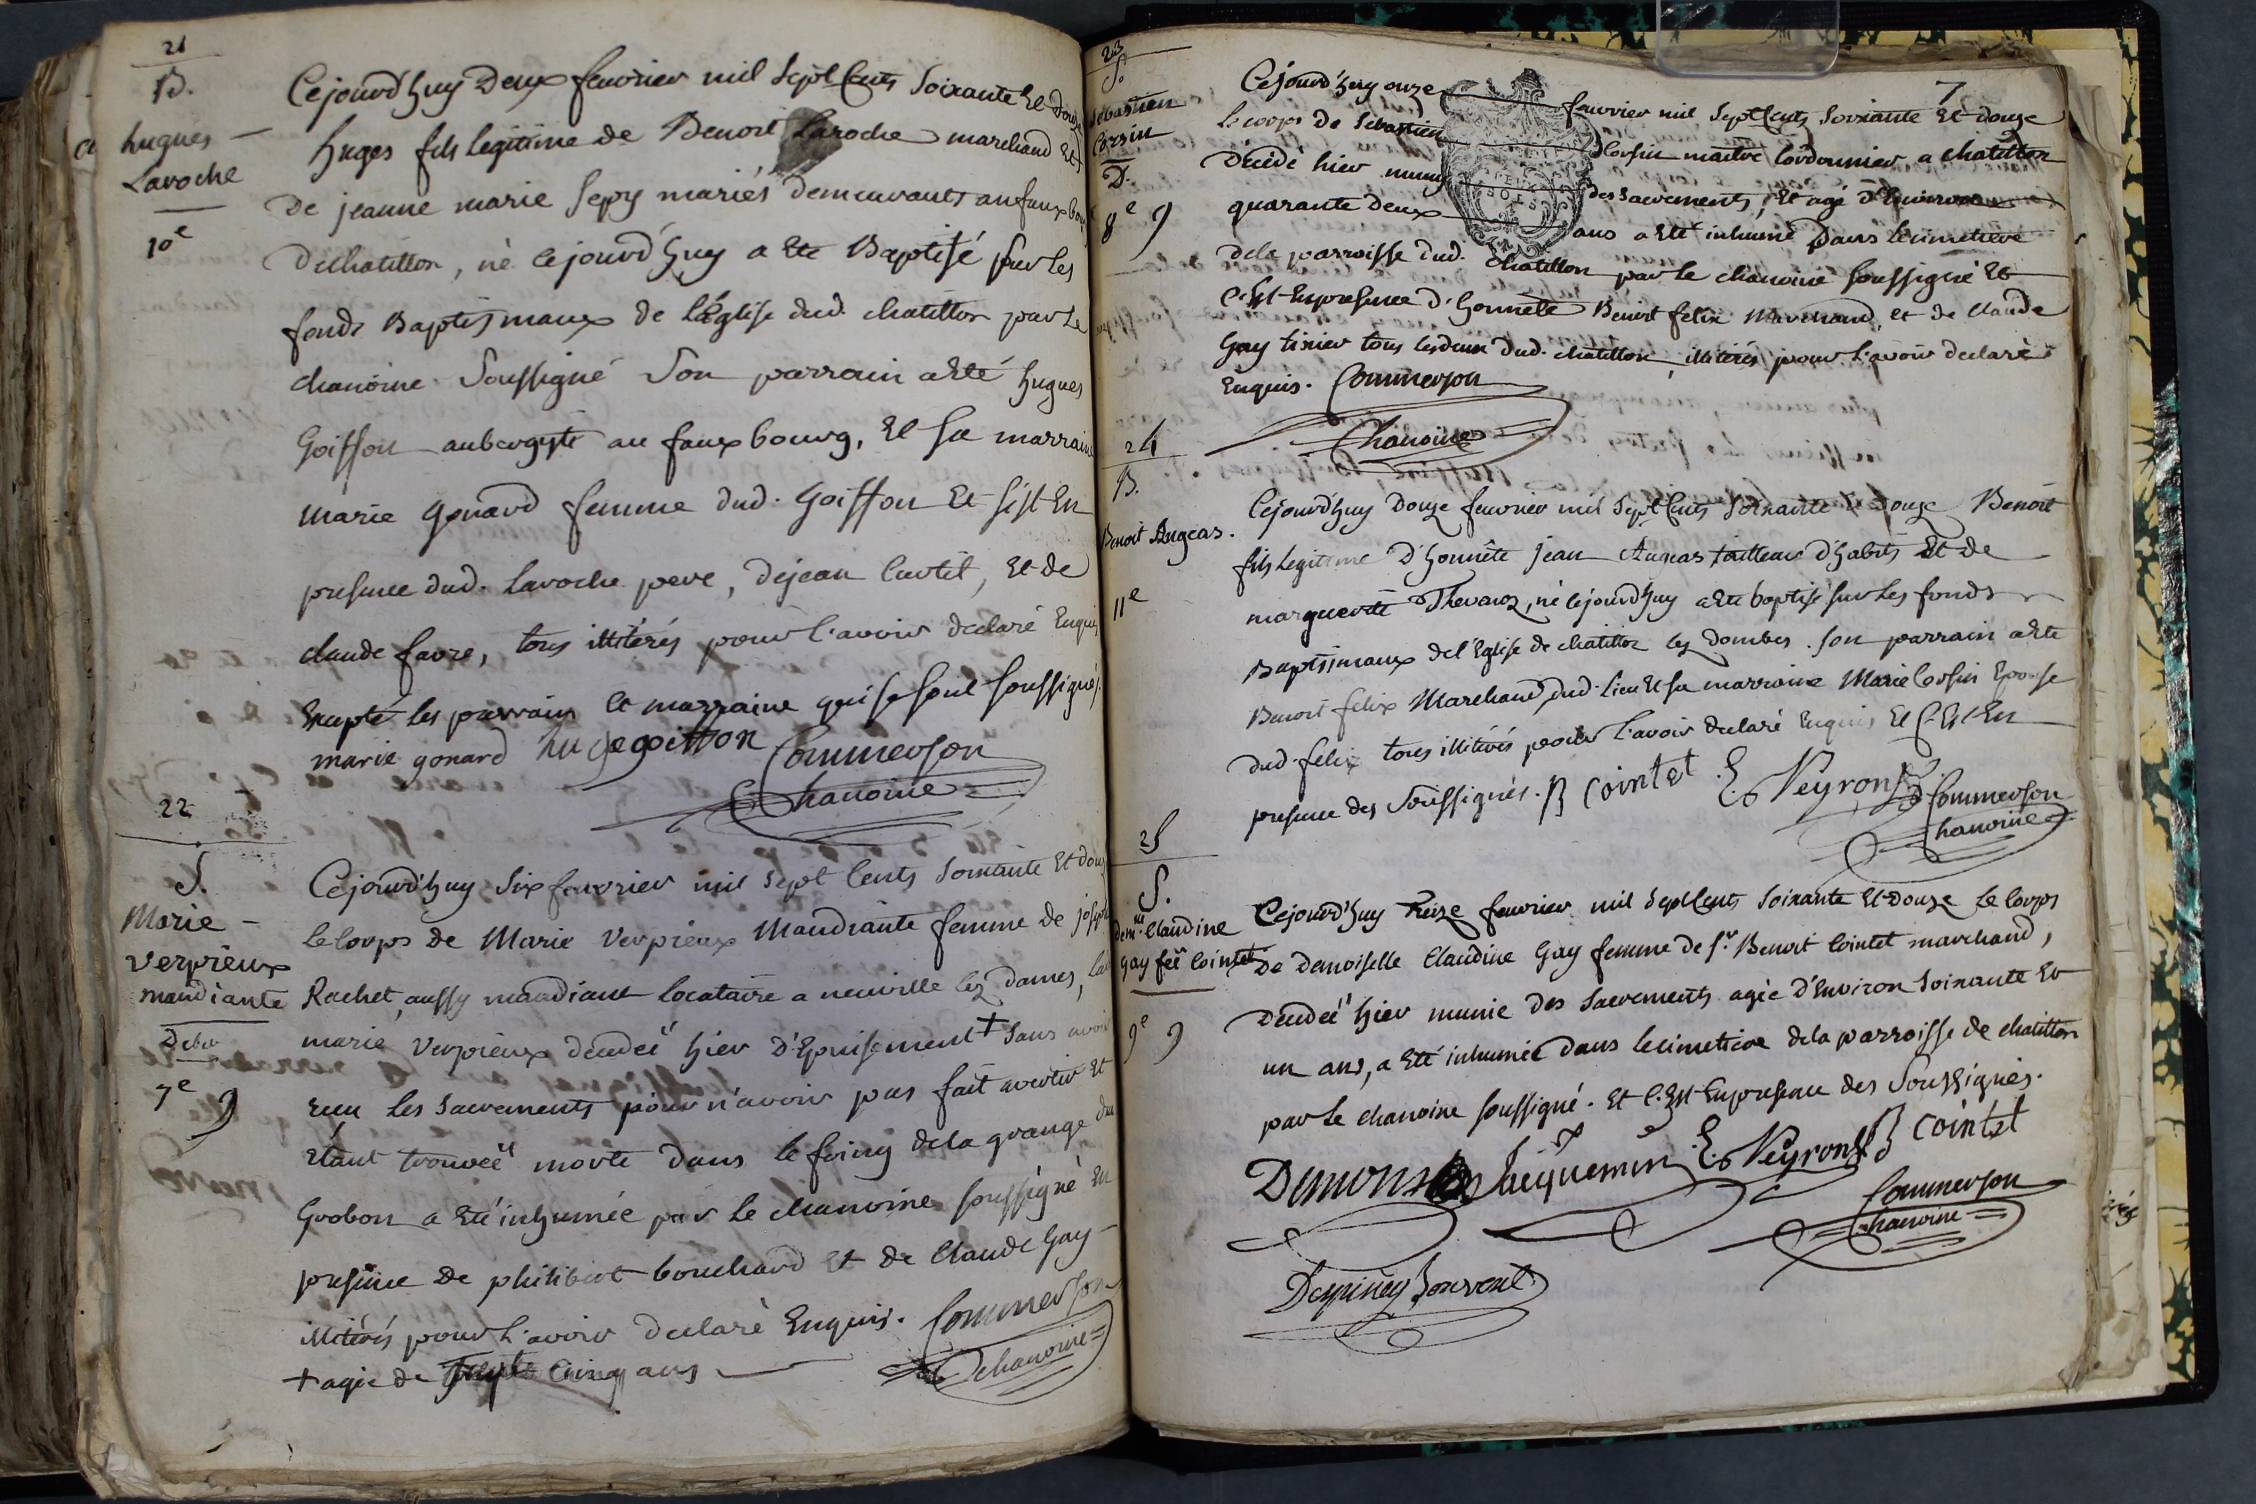 21
B.
hugues
Laroche
10e
Cejourd'huy Deux feuvrier mil Sept Cents Soixante Et douze
huges fils legitime de Benoit Laroche marchand Et
De jeanne marie Sepy mariés demeurants au faux bourg
De chatillon, né cejourd'huy a Ete Baptisé sur Les
fonds Baptismaux de L'Eglise dud. chatillon par Le
chanoine Soussigné Son parrain a Eté hugues
Goiffon aubergyste au faux bourg, Et sa marraine
Marie gonard femme dud. Goiffon Et s'est En
presence dud. Laroche pere, de jean Curtil, Et de
claude favre, tous illiterés pour l'avoir declaré Enquis
Excepté les parrain Et marraine qui se sont soussignés.
marie gonard hugegoiffon Commerson
Chanoine
22
S.
Marie
verpieux
mandiante
7e
Cejourd'huy Six feuvrier mil Sept Cents Soixante Et douze
le Corps de Marie verpieux Mandiante femme de joseph
Rachet, aussy mandiant locataire a neuville les dames,
marie verpieux decedeé hier d'Epuisement + Sans avoir
reçu les Sacrements pour n'avoir pas fait avertir Et
Etant trouveé morte dans le foing dela grange du
Grobon a Eté inhumée par le chanoine soussigné En
presence de philibert bouchard Et de Claude Gay
illiterés pour L'avoir declaré Enquis. Commerson
+ agée de cinq ans chanoine
23
S.
Sebastien
Corsin
D.
8e
7
Cejourd'huy onze feuvrier mil Sept Cents Soixante Et douze
Le corps de Sebastien Corsin maitre Cordonnier a chatillon
Décédé hier muny des Sacrements, Et agé d'Environ
quarante deux ans a Eté inhumé Dans le cimetiere
dela parroisse dud. Chatillon par le chanoine soussigné Et
C'Est En presence d'honnete Benoit felix Marchand, et de Claude
Gay tixier tous les deux dud. chatillon, illiterés pour l'avoir declaré
Enquis. Commerson
Chanoine
24
B.
Benoit Augeas.
11e
Cejourd'huy Douze feuvrier mil Sept Cents Soixante Et Douze Benoit
fils legitime D'honnête jean Augeas tailleur d'habits Et de
marguerite Thevaoz, né cejourd'huy a Ete baptisé sur Les fonds
Baptismaux de l'Eglise de chatillon les dombes. Son parrain a Ete
Benoit felix Marchand dud. Lieu Et sa marraine Marie Corsin Epouse
dud. felix tous illiterés pour L'avoir declaré Enquis Et C'Est En
presence des Soussignés. B cointet E. Veyron Commerson
Chanoine
25
S.
demlle Claudine
gay feè Cointet
9e
Cejourd'huy Treize feuvrier mil Sept Cents Soixante Et Douze Le Corps
De Demoiselle Claudine Gay femme de Sr Benoit Cointet marchand,
Decedeé hier munie des Sacrements agée d'Environ Soixante Et
un ans, a Eté inhumée dans le cimetiere dela parroisse de chatillon
par Le chanoine soussigné. Et C'Est En presence des Soussignés.
Jacquemin E. Veyron B Cointet
Commerson
Chanoine